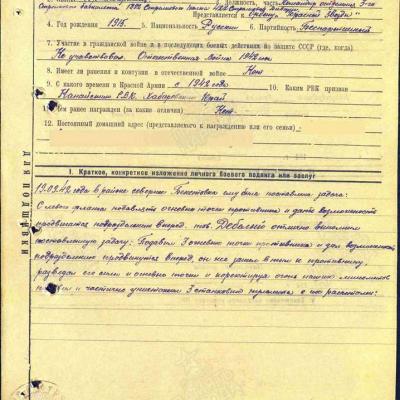 Должность, часть Командир отделения 3-го
Стрелкового батальона, 1232 Стрелкового полка
Представляется к Ордену "Красной Звезды"
4. Год рождения 1915. 5. Национальность Русский 6. Партийность Беспартийный
7. Участие в гражданской войне и в последующих боевых действиях по защите СССР (где, когда)
Не участвовал. Отечественная война 1942 г.
8. Имеет ли ранения и контузии в отечественной войне Нет
9. С какого времени в Красной Армии с 1942 года 10. Каким РВК призван
РВК. Хабаровский Край
11. Чем ранее награжден (за какие отличия) Нет.
12. Постоянный домашний адрес (представляемого к награждению или его семьи)
ДЛЯ ПОДШИВКИ
1. Краткое, конкретное изложение личного боевого подвига или заслуг
19.09.42 в районе севернее Бекетовка была поставлена задача:
С левого фланга подавлять огневые точки противника и дать возможность
продвигаться подразделениям вперед. тов. отлично выполнил
поставленную задачу: Подавил 3 огневые точки противника и дал возможность
подразделению продвинуться вперед, он же зашел в тыл к противнику,
разведал его силы и огневые точки и корректируя огонь наших
и частично уничтожил 3 станковых пулемета с их расчетами.